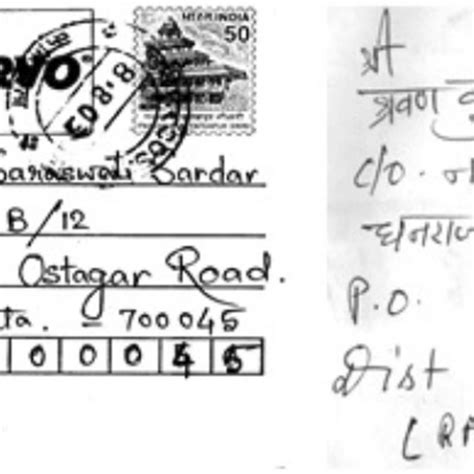 भारत INDIA
50
RVO
8.8.03
Saraswati Sardar
B/12
Ostagar Road.
ta. - 700045
0 0 0 4 5
श्री
श्रवण
C/O. ना
घनराज
P.O.
Dist